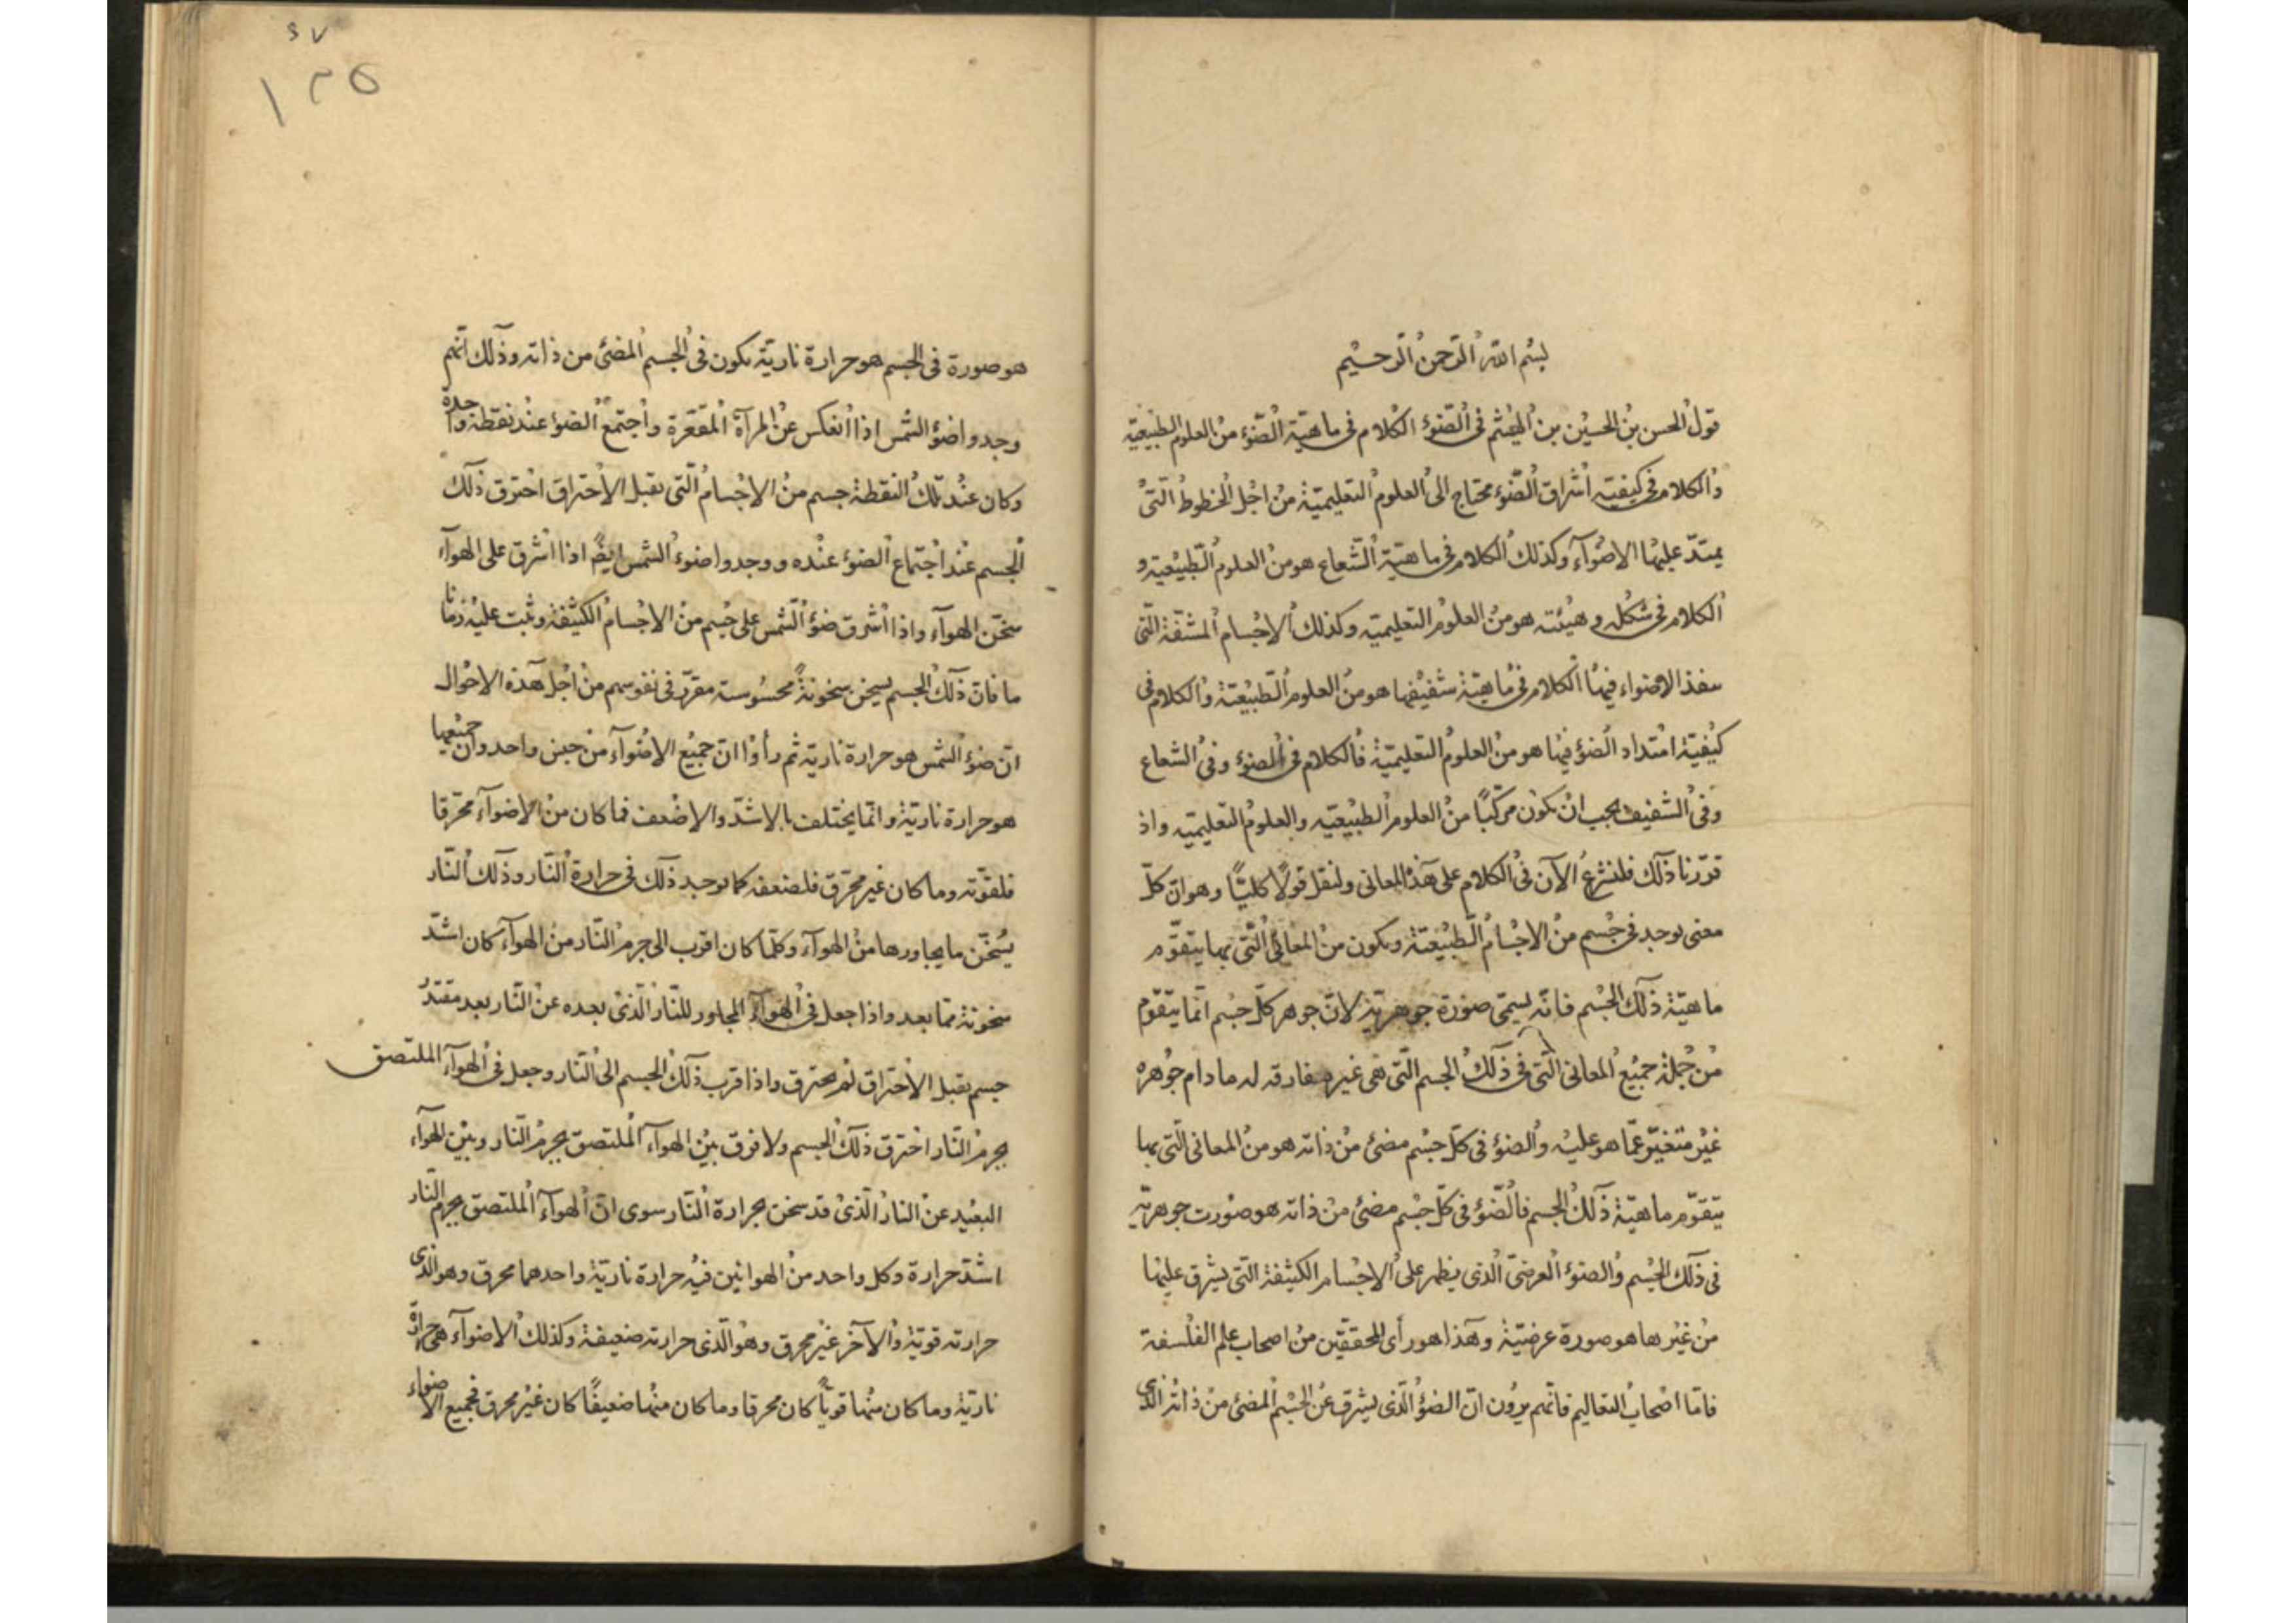 بسم الله الرحمن الرحيم
قول الحسن بن الحسين بن الهيثم فى الضوء الكلام فى ماهية الضوء من العلوم الطبيعية
والكلام فى كيفية اشراق الضوء محتاج الى العلوم التعليمية من اجل الخطوط التى
يمتد عليها الاضوآء وكذلك الكلام فى ماهية الشعاع هو من العلوم الطبيعية و
الكلام فى شكله وهيئته هو من العلوم التعليمية وكذلك الاجسام المشفة التى
ينفذ الاضواء فيها الكلام فى ماهية شفيفها هو من العلوم الطبيعية والكلام فى
كيفية امتداد الضوء فيها هو من العلوم التعليمية فالكلام فى الضوء وفى الشعاع
وفى الشفيف يجب ان يكون مركبًا من العلوم الطبيعية والعلوم التعليمية واذ
قررنا ذلك فلنشرع الآن فى الكلام على هذه المعانى ولنقل قولًا كليًا وهو ان كل
معنى يوجد فى جسم من الاجسام الطبيعية ويكون من المعانى التى بها يتقوم
ماهية ذلك الجسم فانه يسمى صورة جوهرية لان جوهر كل جسم انما يتقوم
من جملة جميع المعانى التى فى ذلك الجسم التى هى غير مفارقه له ما دام جوهره
غير متغير عما هو عليه والضوء فى كل جسم مضئ من ذاته هو من المعانى التى بها
يتقوم ماهية ذلك الجسم فالضوء فى كل جسم مضئ من ذاته هو صورت جوهرية
فى ذلك الجسم والضوء العرضى الذى يظهر على الاجسام الكثيفة التى يشرق عليها
من غيرها هو صورة عرضية وهذا هو رأى المحققين من اصحاب علم الفلسفة
فاما اصحاب التعاليم فانهم يرون ان الضوء الذى يشرق عن الجسم المضئ من ذاته الذى
٤٧
١٣٥
هو صورة فى الجسم هو حرارة نارية يكون فى الجسم المضئ من ذاته وذلك انهم
وجدوا ضوء الشمس اذا انعكس عن المرآة المقعرة واجتمع الضوء عند نقطة واحدة
وكان عند تلك النقطة جسم من الاجسام التى يقبل الاحتراق احترق ذلك
الجسم عند اجتماع الضوء عنده ووجدوا ضوء الشمس ايضً اذا اشرق على الهوآء
سخن الهوآء واذا اشرق ضوء الشمس على جسم من الاجسام الكثيفة وثبت عليه زمانا
ما فان ذلك الجسم يسخن سخونةً محسوسة مقرر فى نفوسهم من اجل هذه الاحوال
ان ضوء الشمس هو حرارة نارية ثم رأوا ان جميع الاضوآء من جنس واحد وان جميعها
هو حرارة نارية وانما يختلف بالاشد والاضعف فما كان من الاضوآء محرقا
فلقوته وما كان غير محرق فلضعفه كما يوجد ذلك فى حرارة النار وذلك النار
يسخن ما يجاورها من الهوآء وكلما كان اقرب الى جرم النار من الهوآء كان اشد
سخونة مما بعد واذا جعل فى الهوآء المجاور للنار الذى بعده عن النار بعد مقتدر
جسم يقبل الاحتراق لم يحترق واذا قرب ذلك الجسم الى النار وجعل فى الهوآء الملتصق
بجرم النار احترق ذلك الجسم ولا فرق بين الهوآء الملتصق بجرم النار وبين الهوآء
البعيد عن النار الذى قد سخن بحرارة النار سوى ان الهوآء الملتصق بجرم النار
اشد حرارة وكل واحد من الهوائين فيه حرارة نارية واحدهما محرق وهو الذى
حرارته قوية والآخر غير محرق وهو الذى حرارته ضعيفة وكذلك الاضوآء هى حرارة
نارية وما كان منها قوياً كان محرقا وما كان منها ضعيفًا كان غير محرق فجميع الاضواء